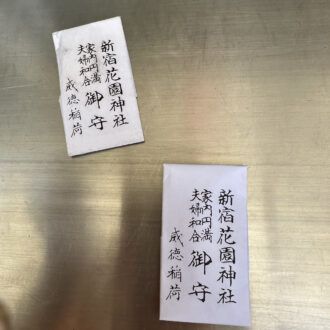 新宿花園神社
家内円満
夫婦和合
御守
威徳稲荷
新宿花園神社
家内円満
夫婦和合
御守
威徳稲荷